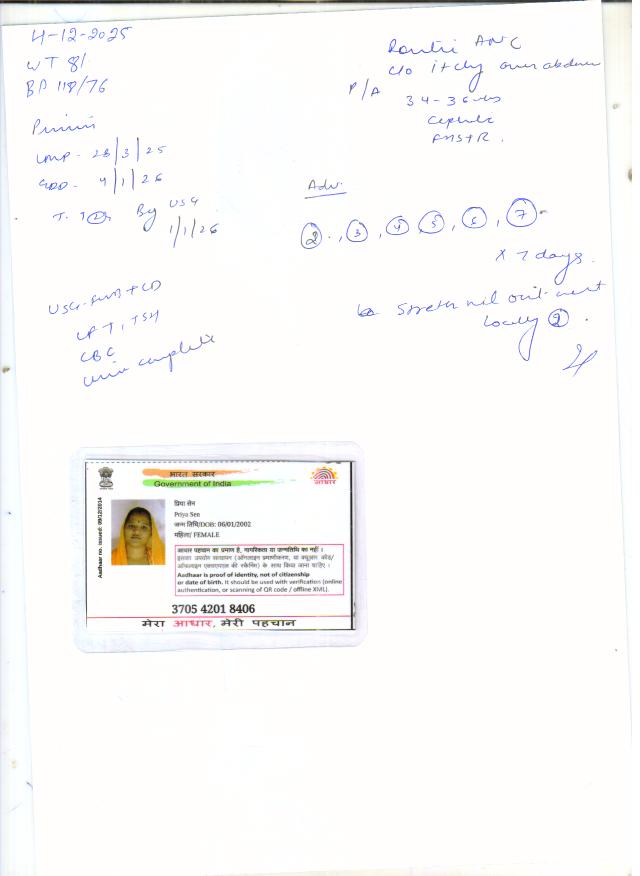 4-12-2025
WT 81
BP 118/76
Primi
LMP - 28/3/25
EDD - 4/1/26
By USG
1/1/26
Routine ANC
c/o itchy over abdomen
P/A
34-36 wks
Cephalic
FHS+R.
Adv.
2, 3, 4, 5, 6, 7
x 7 days.
locally 2.
USG - + CD
LFT, TSH
CBC
urine complete
भारत सरकार
Government of India
आधार
Aadhaar no. issued: 09/12/2014
प्रिया सेन
Priya Sen
जन्म तिथि/DOB: 06/01/2002
महिला/ FEMALE
आधार पहचान का प्रमाण है, नागरिकता या जन्मतिथि का नहीं ।
इसका उपयोग सत्यापन (ऑनलाइन प्रमाणीकरण, या क्यूआर कोड/
ऑफलाइन एक्सएमएल की स्कैनिंग) के साथ किया जाना चाहिए ।
Aadhaar is proof of identity, not of citizenship
or date of birth. It should be used with verification (online
authentication, or scanning of QR code / offline XML).
3705 4201 8406
मेरा आधार, मेरी पहचान